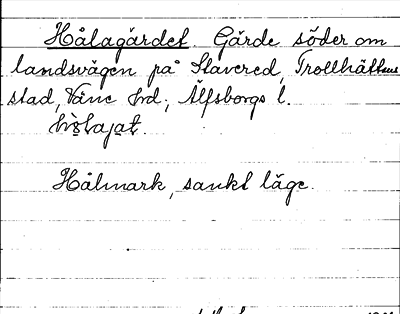 Hålagärdet. Gärde söder om
landsvägen på Slavered, Trollhättans
stad, Väne hrd; Älfsborgs l.
Hålmark, sankt läge.